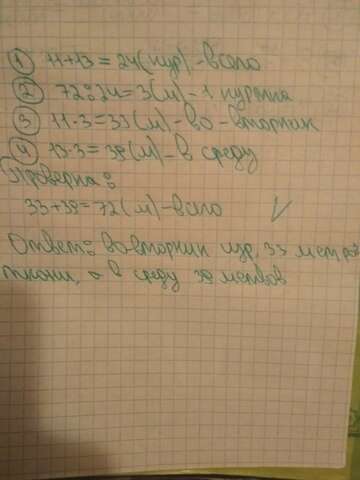 1) 11+13=24(кур)-всего
2) 72:24=3(м)-1 куртка
3) 11·3=33(м)-во-вторник
4) 13·3=39(м)-в среду
Проверка:
33+39=72(м)-всего
Ответ: во вторник изр. 33 метра
ткани, а в среду 39 метров